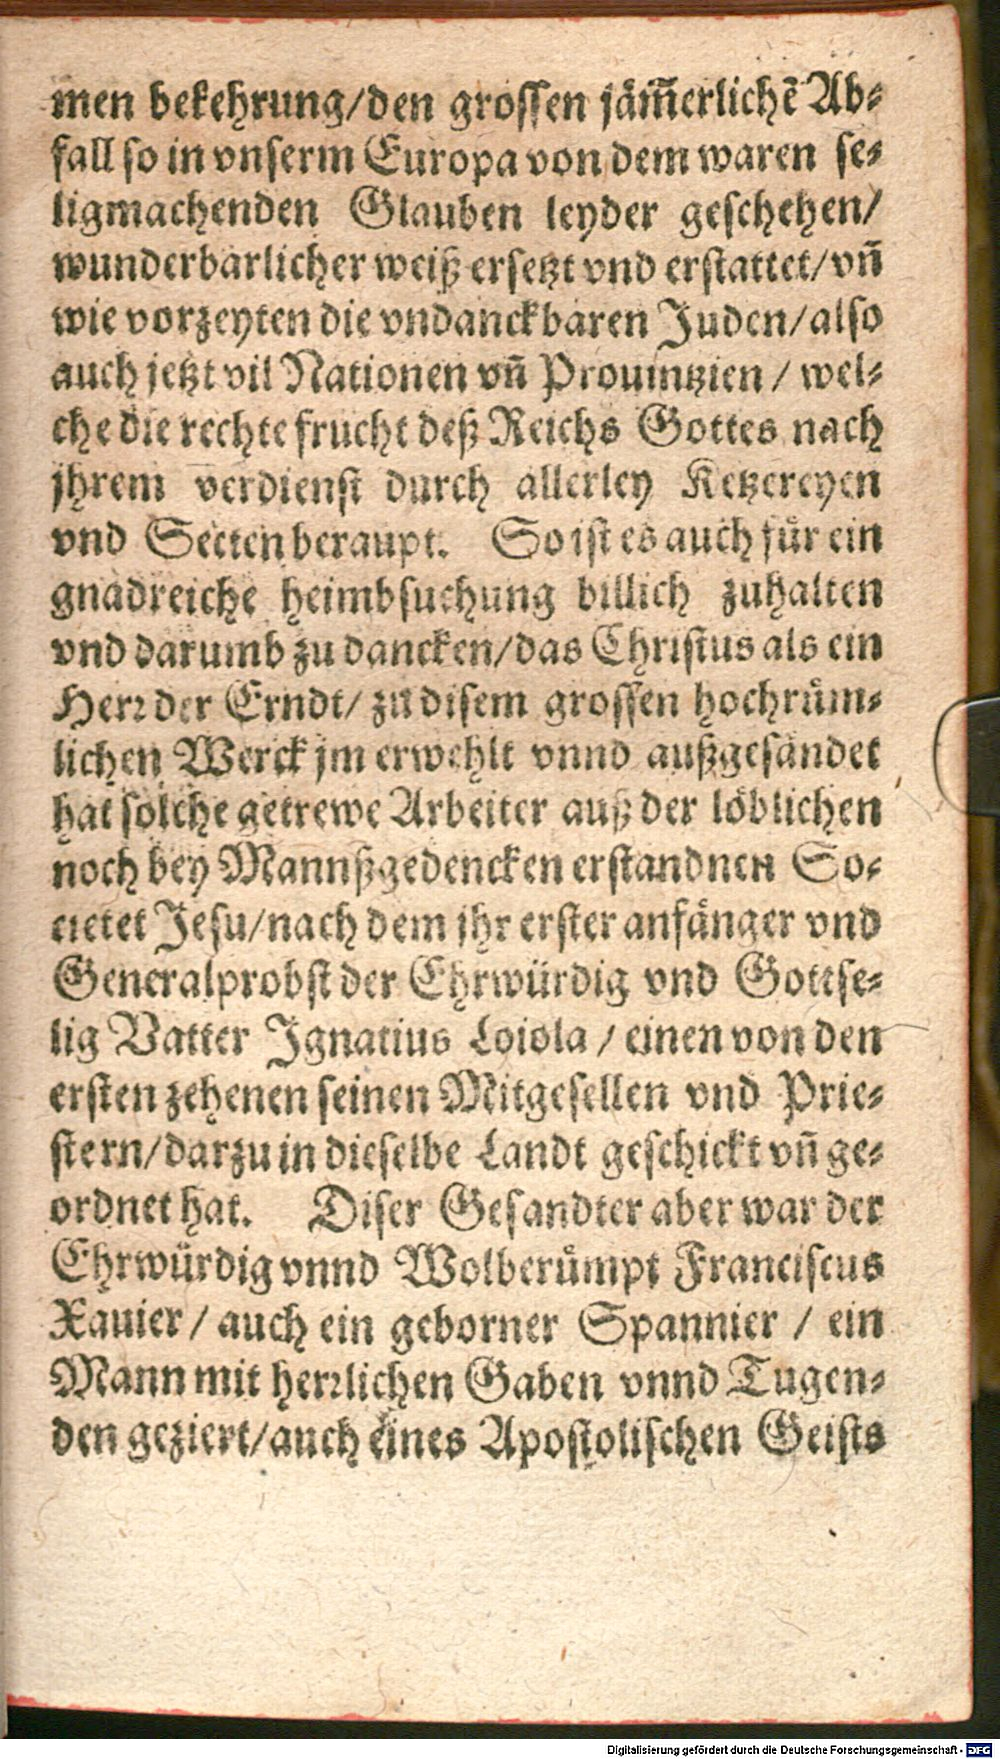 men bekehrung/den grossen jäm̃erlichẽ Ab-
fall so in vnserm Europa von dem waren se-
ligmachenden Glauben leyder geschehen/
wunderbarlicher weiß ersetzt vnd erstattet/vñ
wie vorzeyten die vndanckbaren Juden/also
auch jetzt vil Nationen vñ Prouintzien/ wel-
che die rechte frucht deß Reichs Gottes nach
jhrem verdienst durch allerley Ketzereyen
vnd Secten beraupt. So ist es auch für ein
gnadreiche heimbsuchung billich zuhalten
vnd darumb zu dancken/das Christus als ein
Herr der Erndt/ zu disem grossen hochrům-
lichen Werck jm erwehlt vnnd außgesandet
hat solche getrewe Arbeiter auß der löblichen
noch bey Mannßgedencken erstandnen So-
cietet Jesu/nach dem jhr erster anfänger vnd
Generalprobst der Ehrwürdig vnd Gottse-
lig Vatter Ignatius Loiola/ einen von den
ersten zehenen seinen Mitgesellen vnd Prie-
stern/darzu in dieselbe Landt geschickt vñ ge-
ordnet hat. Diser Gesandter aber war der
Ehrwürdig vnnd Wolberůmpt Franciscus
Xauier/ auch ein geborner Spannier/ ein
Mann mit herrlichen Gaben vnnd Tugen-
den geziert/auch eines Apostolischen Geists
Digitalisierung gefördert durch die Deutsche Forschungsgemeinschaft - DFG